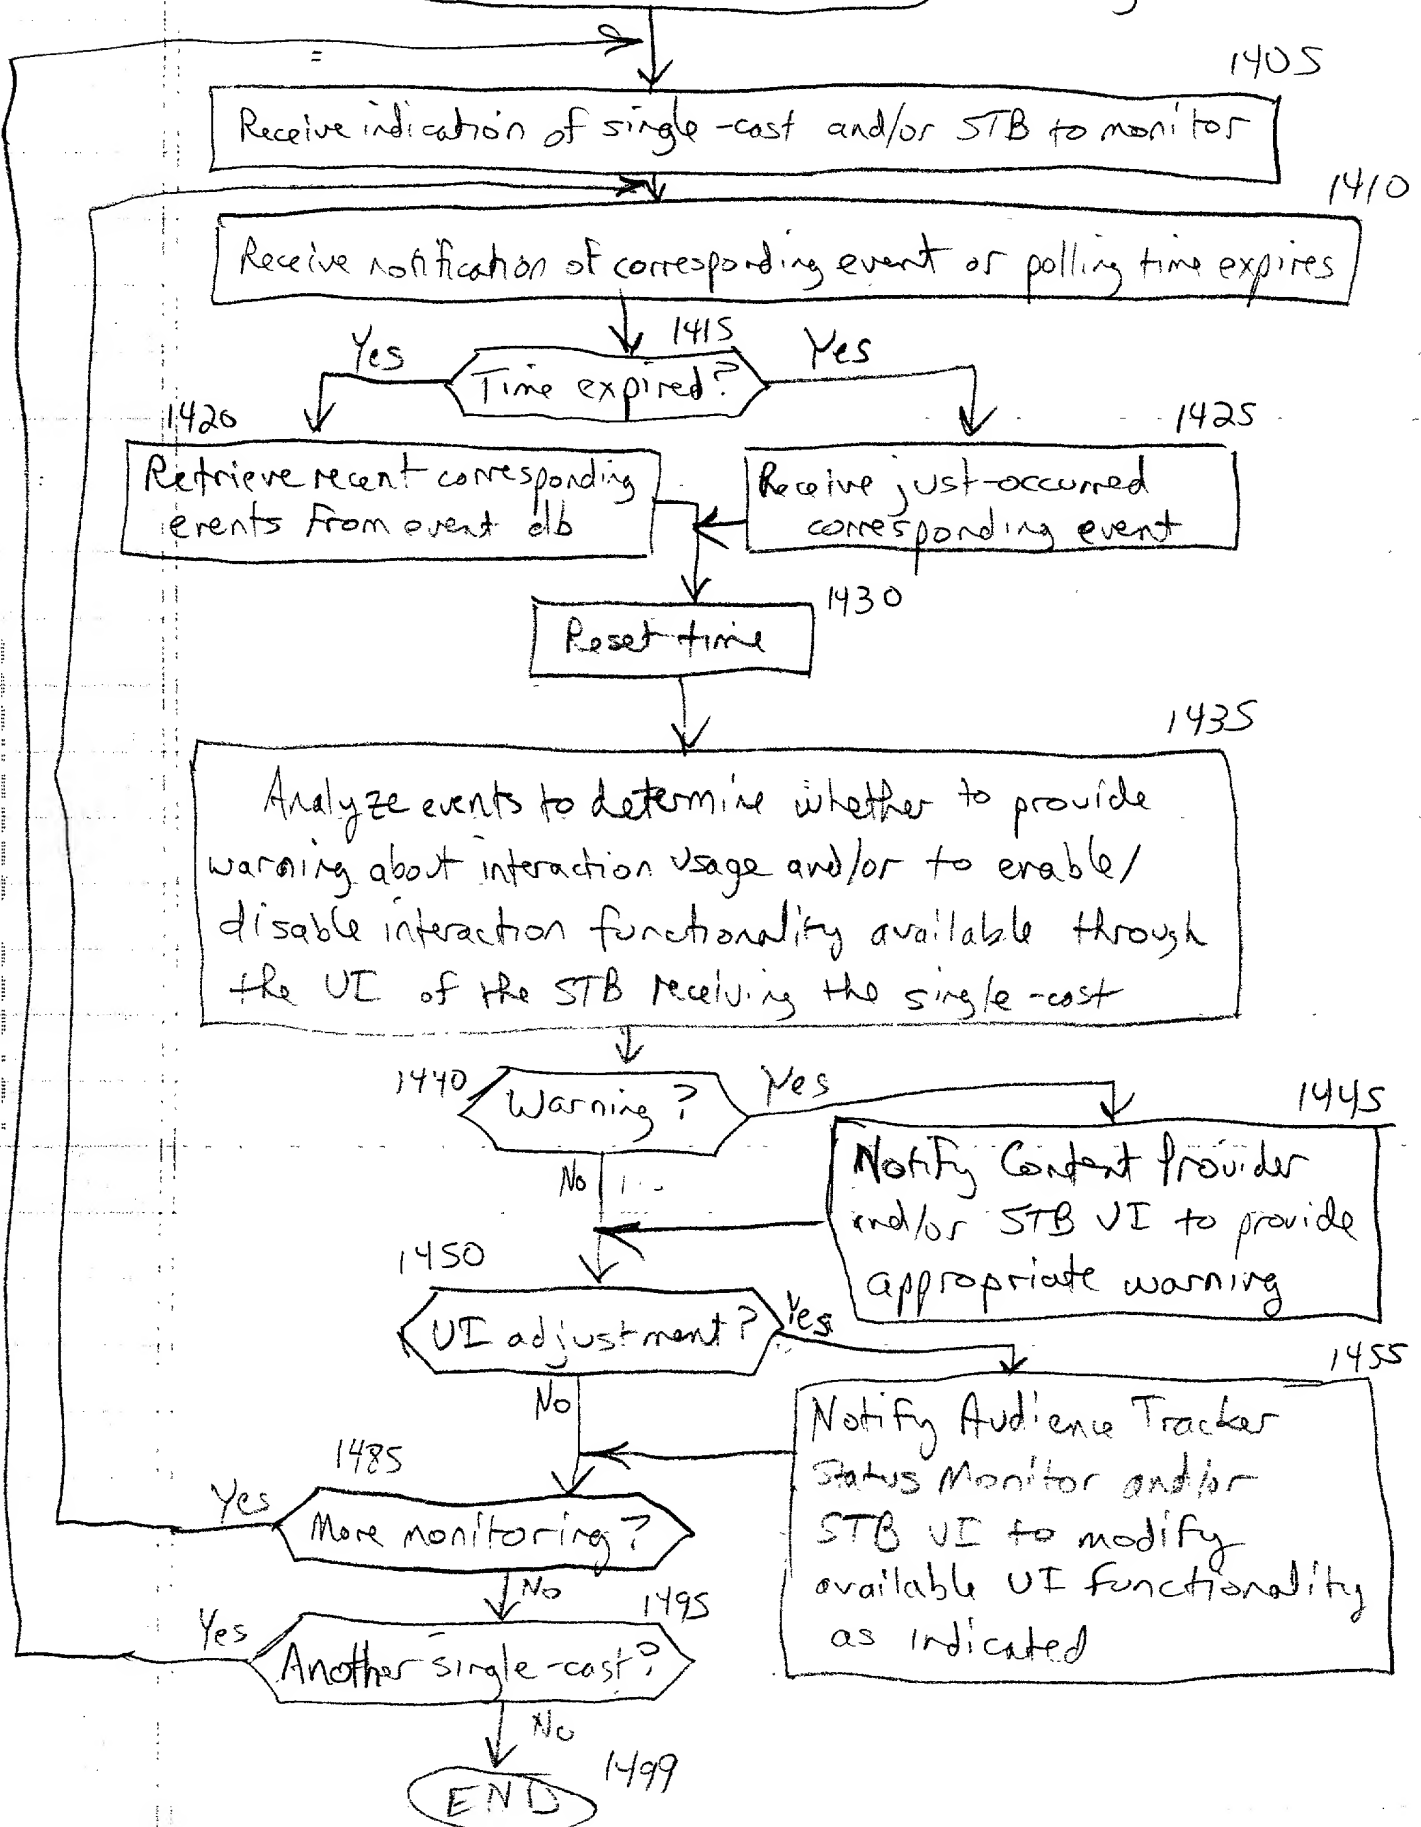 1405
Receive indication of single-cast and/or STB to monitor
1410
Receive notification of corresponding event or polling time expires
1415
Yes
Time expired?
Yes
1420
Retrieve recent corresponding
events from event db
1425
Receive just-occurred
corresponding event
1430
Reset time
1435
Analyze events to determine whether to provide
warning about interaction usage and/or to enable/
disable interaction functionality available through
the UI of the STB receiving the single-cast
1440
Warning?
Yes
No
1445
Notify Content Provider
and/or STB UI to provide
appropriate warning
1450
UI adjustment?
Yes
No
1455
Notify Audience Tracker
Status Monitor and/or
STB UI to modify
available UI functionality
as indicated
1485
Yes
More monitoring?
No
1495
Yes
Another single-cast?
No
END
1499